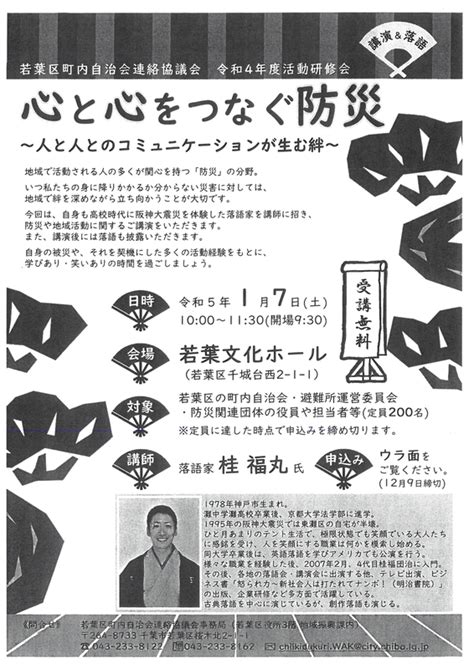 講演&落語
若葉区町内自治会連絡協議会 令和4年度活動研修会
心と心をつなぐ防災
~人と人とのコミュニケーションが生む絆~
地域で活動される人の多くが関心を持つ「防災」の分野。
いつ私たちの身に降りかかるか分からない災害に対しては、
地域で絆を深めながら立ち向かうことが大切です。
今回は、自身も高校時代に阪神大震災を体験した落語家を講師に招き、
防災や地域活動に関するご講演をいただきます。
また、講演後には落語も披露いただきます。
自身の被災や、それを契機にした多くの活動経験をもとに、
学びあり・笑いありの時間を過ごしましょう。
受講無料
日時 令和5年 1月7日(土)
10:00~11:30(開場9:30)
会場 若葉文化ホール
(若葉区千城台西2-1-1)
対象 若葉区の町内自治会・避難所運営委員会
・防災関連団体の役員や担当者等(定員200名)
※定員に達した時点で申込みを締め切ります。
講師 落語家 桂 福丸 氏
申込み ウラ面を
ご覧ください。
(12月9日締切)
1978年神戸市生まれ。
灘中学灘高校卒業後、京都大学法学部に進学。
1995年の阪神大震災では東灘区の自宅が半壊。
ひと月あまりのテント生活で、極限状態でも笑顔でいる大人たち
に感銘を受け、人を笑顔にする職業は何かを模索し始める。
同大学卒業後は、英語落語を学びアメリカでも公演を行う。
様々な職業を経験した後、2007年2月、4代目桂福団治に入門。
その後、各地の落語会・講演会に出演する他、テレビ出演、ビジ
ネス書「怒られ力~新社会人は打たれてナンボ!(明治書院)」
の出版、企業研修など多方面で活躍している。
古典落語を中心に演じているが、創作落語も演じる。
《問合せ》 若葉区町内自治会連絡協議会事務局(若葉区役所3階 地域振興課内)
〒264-8733 千葉市若葉区桜木北2-1-1
043-233-8122 043-233-8162 chiikidukuri.WAK@city.chiba.lg.jp